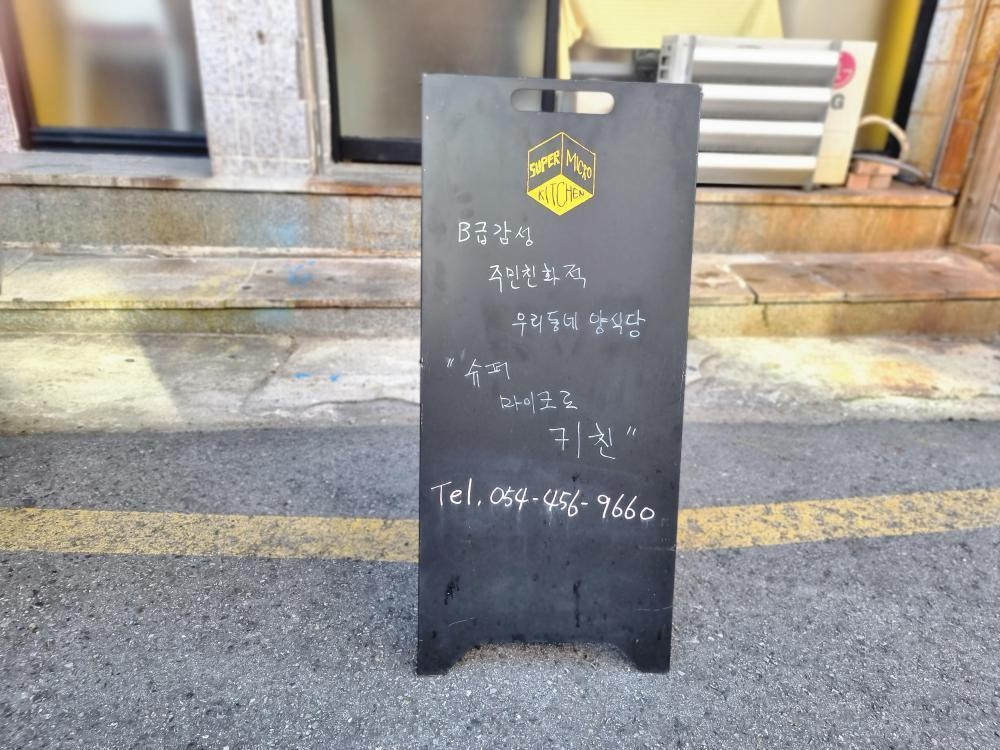 SUPER MICRO
KITCHEN
B급감성
주민친화적
우리동네 양식당
"슈퍼
마이크로
키친"
Tel. 054-456-9660
G